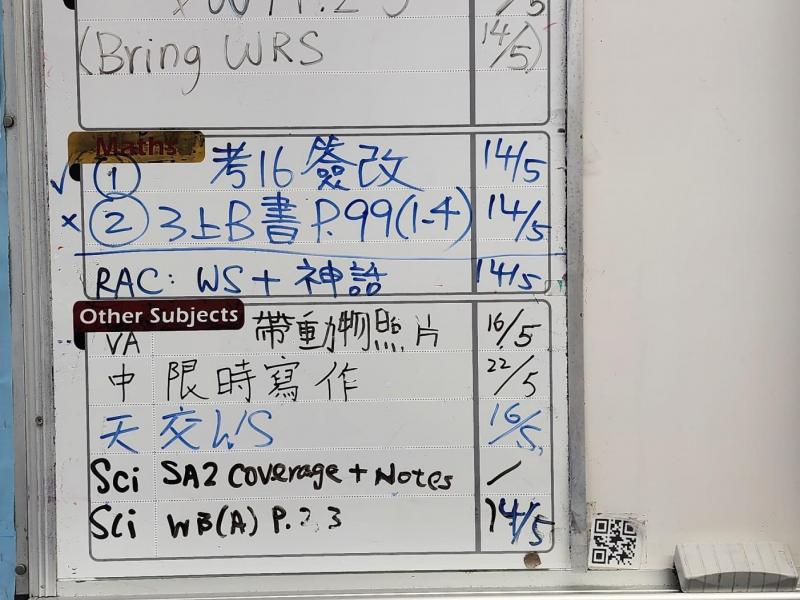 (Bring WRS 14/5)
Maths
✓ ① 考16簽改 14/5
× ② 3上B書 P.99(1-4) 14/5
RAC: WS + 神話 14/5
Other Subjects
VA 帶動物照片 16/5
中 限時寫作 22/5
天 交WS 16/5
Sci SA2 Coverage + Notes /
Sci WB(A) P. 3 14/5